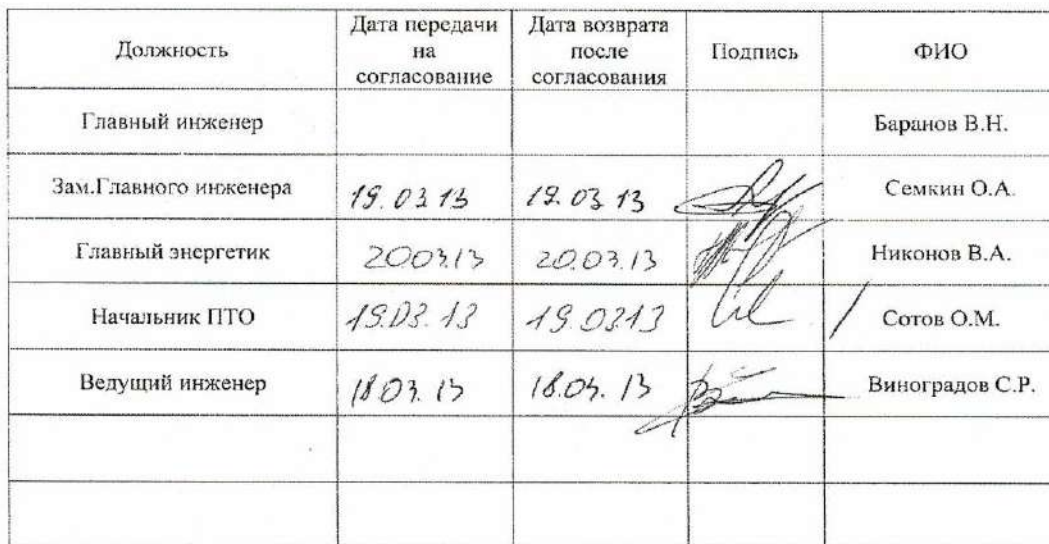 Должность Дата передачи на согласование Дата возврата после согласования Подпись ФИО
Главный инженер Баранов В.Н.
Зам.Главного инженера 19.03.13 19.03.13 Семкин О.А.
Главный энергетик 20.03.13 20.03.13 Никонов В.А.
Начальник ПТО 19.03.13 19.03.13 Сотов О.М.
Ведущий инженер 18.03.13 18.03.13 Виноградов С.Р.